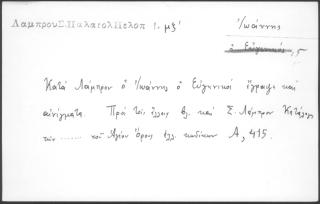 Λάμπρου Σ. Παλαιολ Πελοπ 1. μξ'
Ἰωάννης
ὁ Εὐγενικός 15
Κατά Λάμπρον ὁ Ἰωάννης ὁ Εὐγενικός ἔγραψε καί
αἰνίγματα. Πρό τοῦ βλ. καί Σ. Λάμπρου Κατάλογ
τῶν ........ τοῦ Ἁγίου Ὄρους ἑλλ. κωδίκων Α, 415.